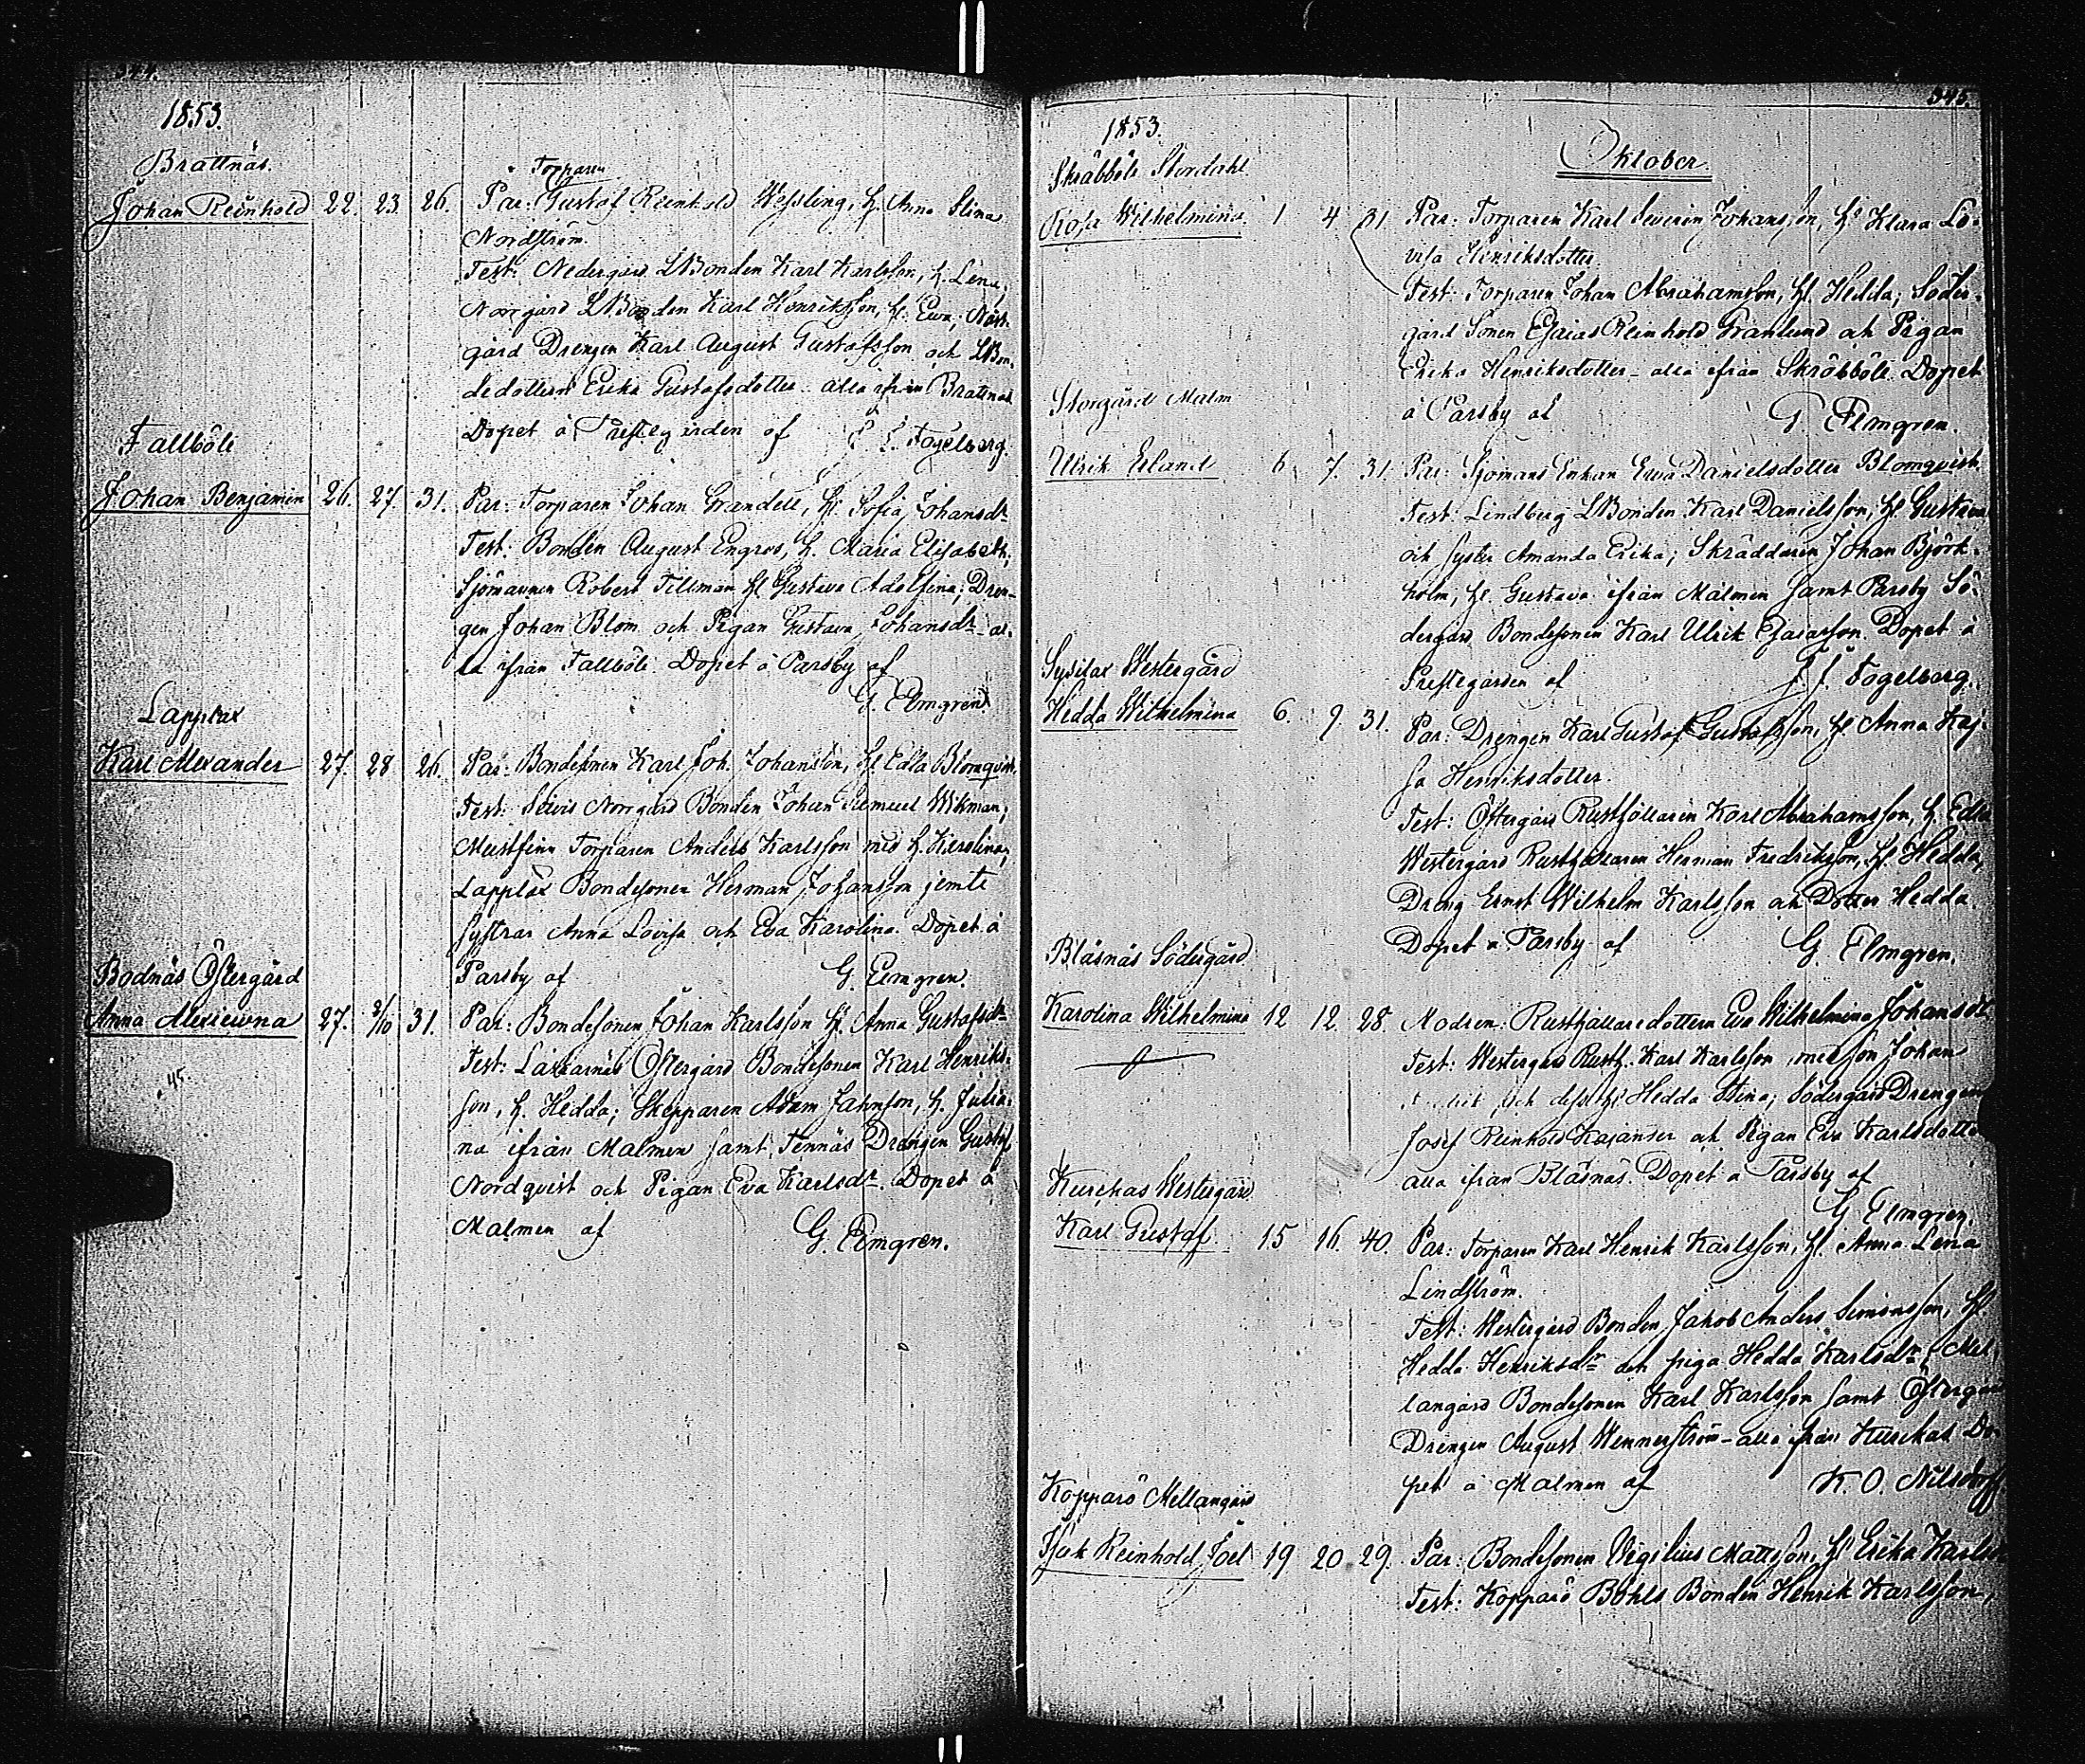 344.
1853.
Brattnäs.
Johan Reinhold 22. 23. 26. Torparen
Par: Gustaf Reinhold Wessling, h. Anna Stina
Nordström.
Test: Nedergård LBonden Karl Karlsson, h. Lena,
Norrgård LBonden Karl Henriksson, h. Ewa;
gård Drengen Karl August Gustafsson och LBon-
dedottern Erika Gustafsdotter alla ifrån Brattnäs
Dopet å Prestegården af Fogelberg.
Fallböle
Johan Benjamin 26. 27. 31. Par: Torparen Johan Grandell, H. Sofia Johansdr
Test: Bonden August Engros, h. Maria Elisabeth;
Sjömannen Robert Tillman H. Gustava Adolfina; Dren-
gen Johan Blom och Pigan Gustava Johansdr al-
la ifrån Fallböle. Dopet å Parsby af
G. Elmgren.
Lapplax
Karl Alexander 27. 28 26. Par: Bondesonen Karl Joh. Johansson, H. Edla Blomqvist.
Test: Norrgård Bonden Johan Wikman;
Mustfinn Torparen Anders Karlsson med h. Karolina;
Lapplax Bondesonen Herman Johansson jemte
systrar Anna Lovisa och Eva Karolina. Dopet å
Parsby af G. Elmgren.
Bodnäs Östergård
Anna Alexiewna 27. 2/10 31. Par: Bondesonen Johan Karlsson H. Anna Gustafsdr
Test: Östergård Bondesonen Karl Henriks-
son, h. Hedda; Skepparen Adam Jahnson, h. Julia-
na ifrån Malmen samt Tennäs Drengen Gustaf
Nordqvist och Pigan Eva Karlsdr. Dopet å
Malmen af G. Elmgren.
345.
1853.
Oktober.
Skräbböle Stordahl
Rosa Wilhelmina 1 4 31. Par: Torparen Karl Severin Johansson, hs Klara Lo-
visa Henriksdotter.
Test: Torparen Johan Abrahamsson, H. Hedda; Söder-
gård Sonen Esaias Reinhold Granlund och Pigan
Erika Henriksdotter – alla ifrån Skräbböle. Dopet
å Parsby af G. Elmgren.
Storgård Malm
Ulrik Erland 6 7. 31. Par: Sjömans Enkan Ewa Danielsdotter Blomqvist.
Test: Lindberg LBonden Karl Danielsson, H. Gustava
och syster Amanda Erika; Skräddaren Johan Björk-
holm, H. Gustava ifrån Malmen samt Parsby Sö-
dergård Bondesonen Karl Ulrik Esaiasson. Dopet å
Prestegården af Fogelberg.
Sydilax Westergård
Hedda Wilhelmina 6. 9 31. Par: Drengen Karl Gustaf Gustafsson, H. Anna Kaj-
sa Henriksdotter.
Test: Östergård Rusthållaren Karl Abrahamsson, h. Edla
Westergård Rusthållaren Herman Fredriksson, H. Hedda,
Dreng Ernst Wilhelm Karlsson och Dotter Hedda.
Dopet å Parsby af G. Elmgren.
Bläsnäs Södergård
Karolina Wilhelmina 12 12 28. Modren: Rusthållaredottern Eva Wilhelmina Johansdr
Test: Westergård Rusth. Karl Karlsson, med son Johan
och Hedda Stina; Södergård Drengen
Josef Reinhold Kajander och Pigan Eva Karlsdotter
alla ifrån Bläsnäs. Dopet å Parsby af
G. Elmgren.
Kurckas Westergård
Karl Gustaf 15 16. 40. Par: Torparen Karl Henrik Karlsson, H. Anna Lena
Lindström.
Test: Westergård Bonden Jakob Anders Simonsson, H.
Hedda Henriksdr och piga Hedda Karlsdr; Mel-
langård Bondesonen Karl Karlsson samt Östergård
Drengen August Wennerström – alla ifrån Kurckas. Do-
pet å Malmen af K. O. Nilsdorff
Kopparö Mellangård
Isak Reinhold Joel 19 20 29. Par: Bondesonen Vigilius Mattsson, H. Erika Karlsd
Test: Kopparö Böhls Bonden Henrik Karlsson,